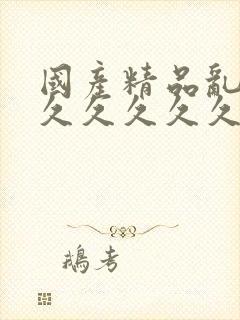 國產精品亂
久久久久久
鵝考